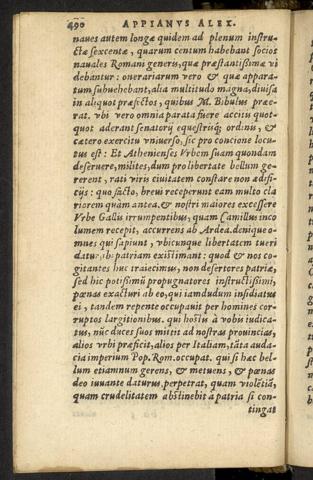 490 APPIANVS ALEX.
naues autem longæ quidem ad plenum instru-
ctæ sexcentæ, quarum centum habebant socios
nauales Romani generis, quæ præstantissimæ vi
debantur: onerariarum vero & quæ appara-
tum subuehebant, alia multitudo magna, diuisa
in aliquot præfectos, quibus M. Bibulus præe-
rat. vbi vero omnia parata fuere accitis quot-
quot aderant senatorij equestrisq; ordinis, &
cætero exercitu vniuerso, sic pro concione locu-
tus est: Et Athenienses Vrbem suam quondam
deseruere, milites, dum pro libertate bellum ge-
rerent, rati viris ciuitatem constare non ædifi-
cijs: quo facto, breui receperunt eam multo cla
riorem quàm antea. & nostri maiores excessere
Vrbe Gallis irrumpentibus, quam Camillus inco
lumem recepit, accurrens ab Ardea. denique o-
mnes qui sapiunt, vbicunque libertatem tueri
datur, ibi patriam existimant: quod & nos co-
gitantes huc traiecimus, non desertores patriæ,
sed hic potissimū propugnatores instructissimi,
pœnas exacturi ab eo, qui iamdudum insidiatus
ei, tandem repente occupauit per homines cor-
ruptos largitionibus. qui hostis à vobis iudica-
tus, nūc duces suos mittit ad nostras prouincias,
alios vrbi præficit, alios per Italiam, tāta auda-
cia imperium Pop. Rom. occupat. qui si hæc bel-
lum etiamnum gerens, & metuens, & pœnas
deo iuuante daturus, perpetrat, quam violētiā,
quam crudelitatem abstinebit à patria si con-
tingat